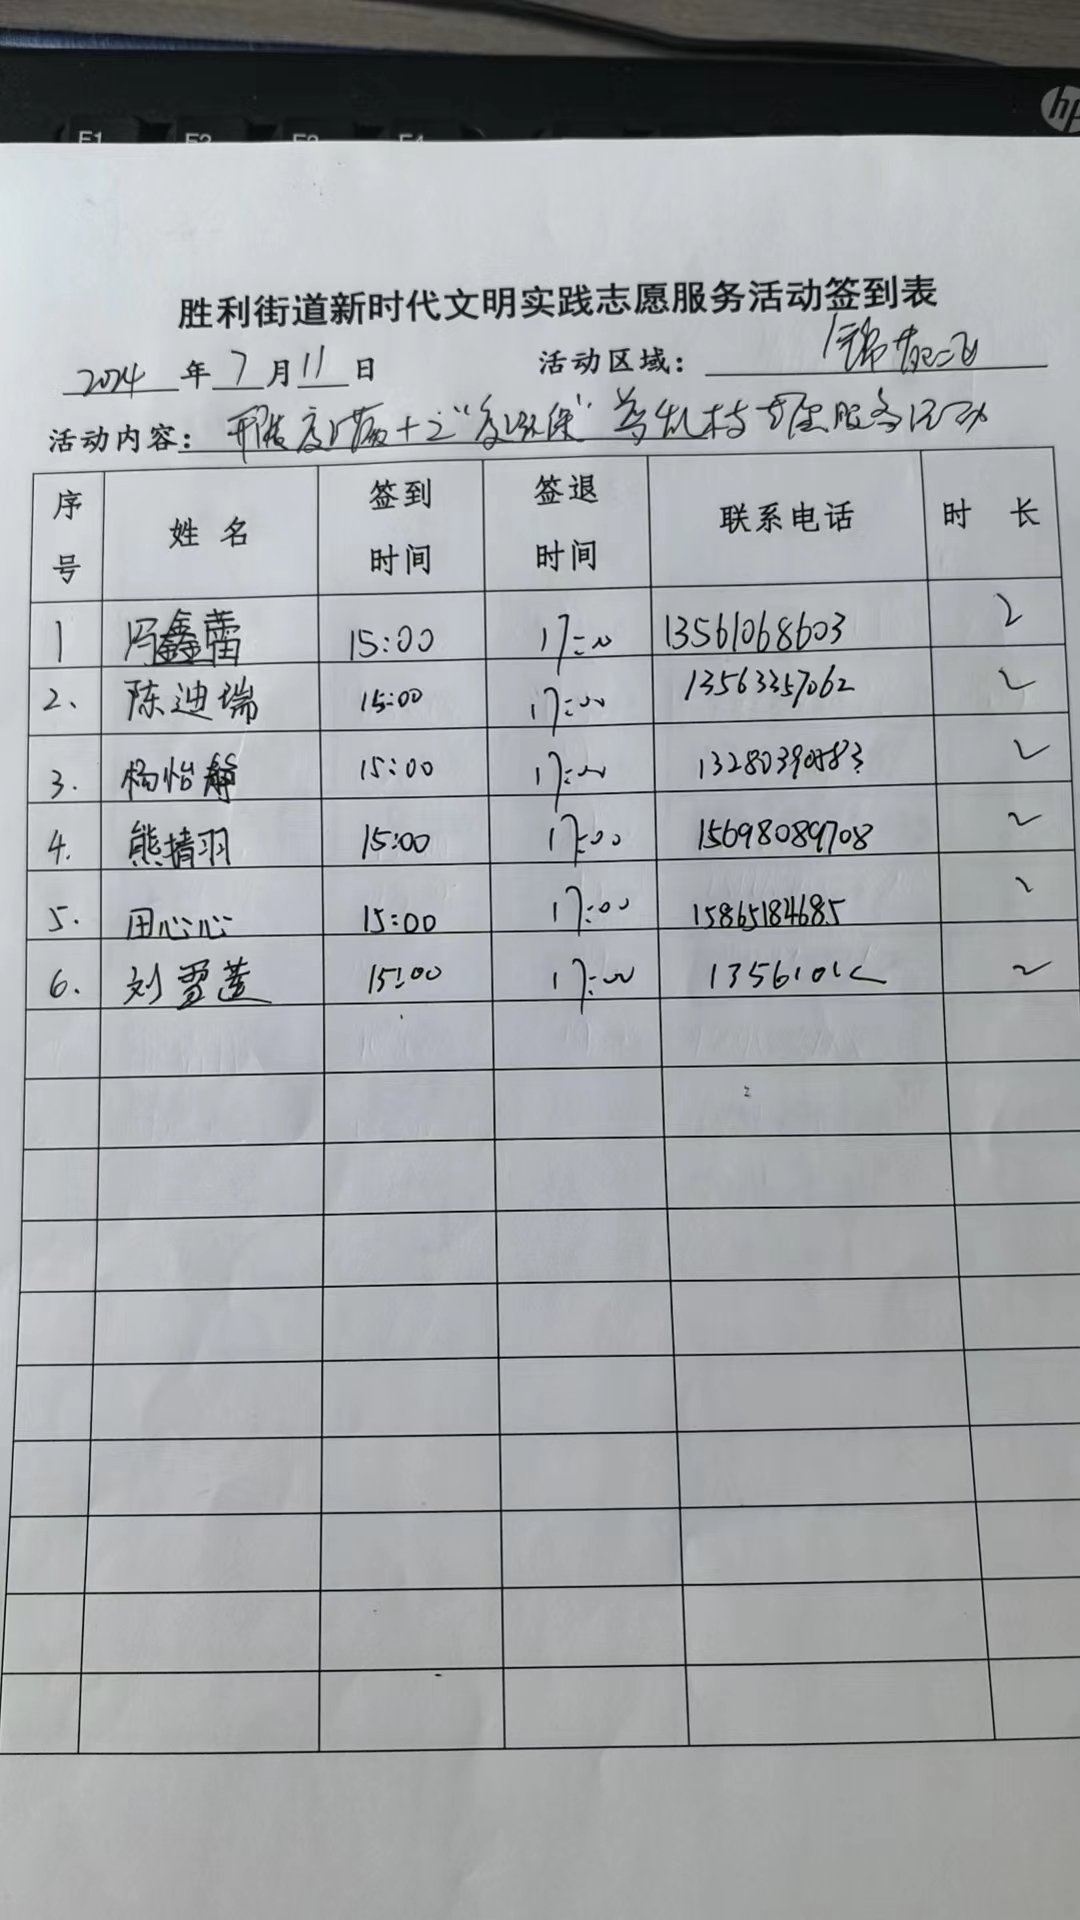 hp
F1 F2 F3 F4
胜利街道新时代文明实践志愿服务活动签到表
2024年7月11日 活动区域：锦苑二
活动内容： 志愿服务活动
序号 姓名 签到时间 签退时间 联系电话 时长
1 冯鑫蕾 15:00 17:00 13561068603 2
2. 陈迪瑞 15:00 17:00 13563357062 2
3. 杨怡静 15:00 17:00 2
4. 熊婧羽 15:00 17:00 15698089708 2
5. 田心心 15:00 17:00 15865184685 2
6. 刘雪莲 15:00 17:00 2